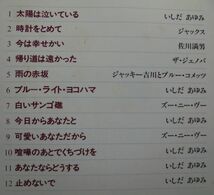 1 太陽は泣いている いしだ あゆみ
2 時計をとめて ジャックス
3 今は幸せかい 佐川満男
4 帰り道は遠かった ザ・ジェノバ
5 雨の赤坂 ジャッキー吉川とブルー・コメッツ
6 ブルー・ライト・ヨコハマ いしだ あゆみ
7 白いサンゴ礁 ズー・ニー・ヴー
8 今日からあなたと いしだ あゆみ
9 可愛いあなただから ズー・ニー・ヴー
10 喧嘩のあとでくちづけを いしだ あゆみ
11 あなたならどうする いしだ あゆみ
12 止めないで いしだ あゆみ